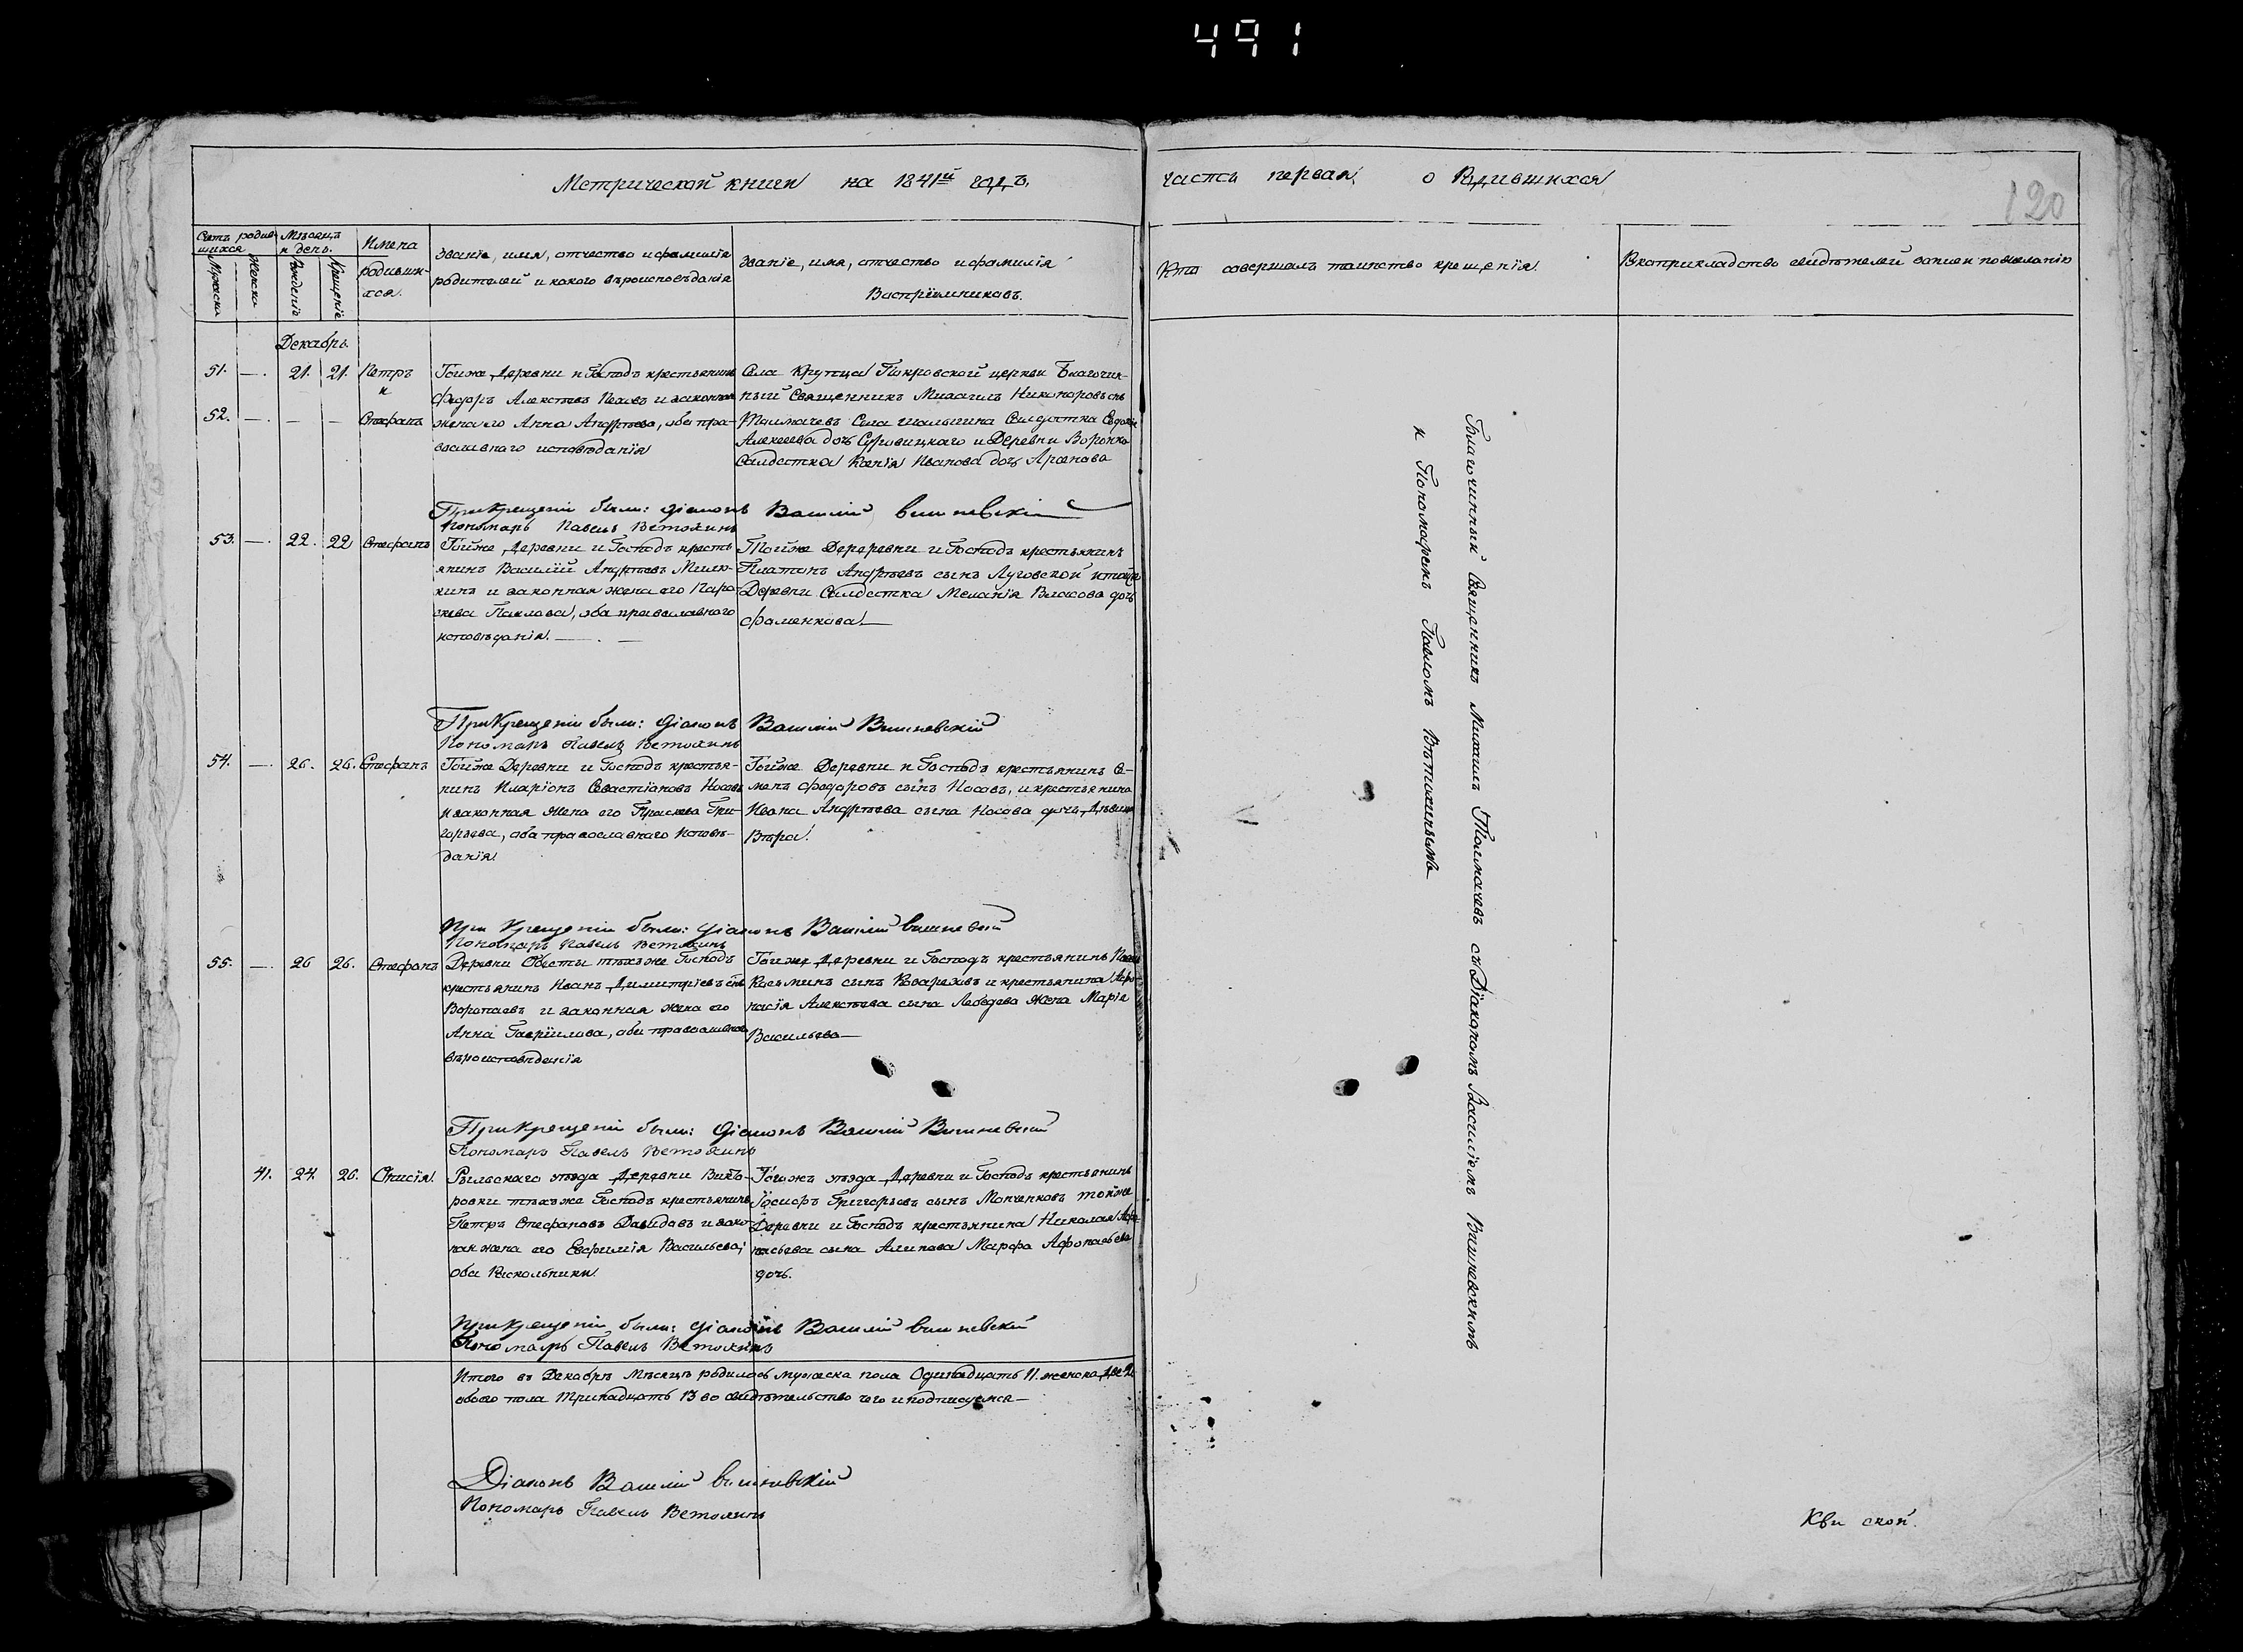 491
Метрической книги на 1841й годъ,
часть первая, о Родившихся
120
Счетъ родив-
шихся
Мѣсяцъ
и день.
Имена
родивши-
хся.
Мужеска
Женска
Рожденіе
Крещеніе
Званіе, имя, отчество и фамилія
родителей и какого вѣроисповѣданія
Званіе, имя, отчество и фамилія
Воспріемниковъ.
Кто совершалъ таинство крещенія.
Рукоприкладство свидѣтелей записи по желанію
Декабрь
51. —. 21. 21. Петръ
и
52. —. — — Стефанъ
Тойже Деревни и Господъ крестьянинъ
Федоръ Алексѣевъ и законная
жена его Анна Андрѣева, оба пра-
вославнаго исповѣданія
Села Крупца Покровской церкви Благочин-
ный Священникъ Михаилъ Никаноровъ сынъ
Толмачевъ Села Шалыгина Салдатка Евдокія
Алексеева дочь и Деревни
Салдатка Ксенія Иванова дочь
При Крещеніи были: Діаконъ Василій Вишневскій
Пономарь Павелъ Ветохинъ
53. —. 22. 22 Стефанъ
Тойже Деревни и Господъ кресть
янинъ Василій Андрѣевъ
и законная жена его Параскева
Павлова, оба православного
исповѣданія. — . —
Тойже Дереревни и Господъ крестьянинъ
Платонъ Андрѣевъ сынъ Луговской и тойже
Деревни Салдатка Меланія Власова дочь
Фоменкова —
При Крещеніи были: Діаконъ Василій Вишневскій
Пономарь Павелъ Ветохинъ
54. —. 26. 26. Стефанъ
Тойже Деревни и Господъ крестья-
нинъ Иларіонъ Севастіановъ Носовъ
и законная жена его Прасковья Гри-
горьева, оба православнаго исповѣ-
данія
Тойже Деревни и Господъ крестьянинъ Се-
менъ Федоровъ сынъ Носовъ, и крестьянина
Ивана Андрѣева сына Носова дочь Дѣвица
Вѣра
При Крещеніи были: Діаконъ Василій Вишневскій
Пономарь Павелъ Ветохинъ
55. —. 26 26. Стефанъ
Деревни тѣхъже Господъ
крестьянинъ Иванъ Димитріевъ сынъ
Воропаевъ и законная жена его
Анна Гавріилова, оба православнаго
вѣроисповѣданія
Тойже Деревни и Господъ крестьянинъ
Косьминъ сынъ и крестьянина Афа-
насія Алексѣева сына Лебедева жена Марія
Васильева —
При Крещеніи были: Діаконъ Василій Вишневскій
Пономарь Павелъ Ветохинъ
41. 24. 26. Анисія.
Рыльскаго уѣзда Деревни
тѣхъже Господъ крестьянинъ
Петръ Стефановъ Давидовъ и закон-
ная жена его Евфимія Васильева;
оба Раскольники.
Тогожъ уѣзда Деревни и Господъ крестьянинъ
Іосифъ Григорьевъ сынъ Монченковъ тойже
Деревни и Господъ крестьянина Николая Афа-
насьева сына Алипова Марфа Афонасьева
дочь.
При Крещеніи были: Діаконъ Василій Вишневскій
Пономарь Павелъ Ветохинъ
Итого въ Декабрѣ Мѣсяцѣ родилось мужеска пола Одинадцать 11. женска Две 2.
обоего пола Тринадцать 13 во свидѣтельство чего и подписуемся —
Діаконъ Василій Вишневскій
Пономарь Павелъ Ветохинъ
Благочинный Священникъ Михаилъ Толмачевъ съ Діакономъ Василіемъ Вишневскимъ
и Пономаремъ Павломъ Ветохинымъ
ской.